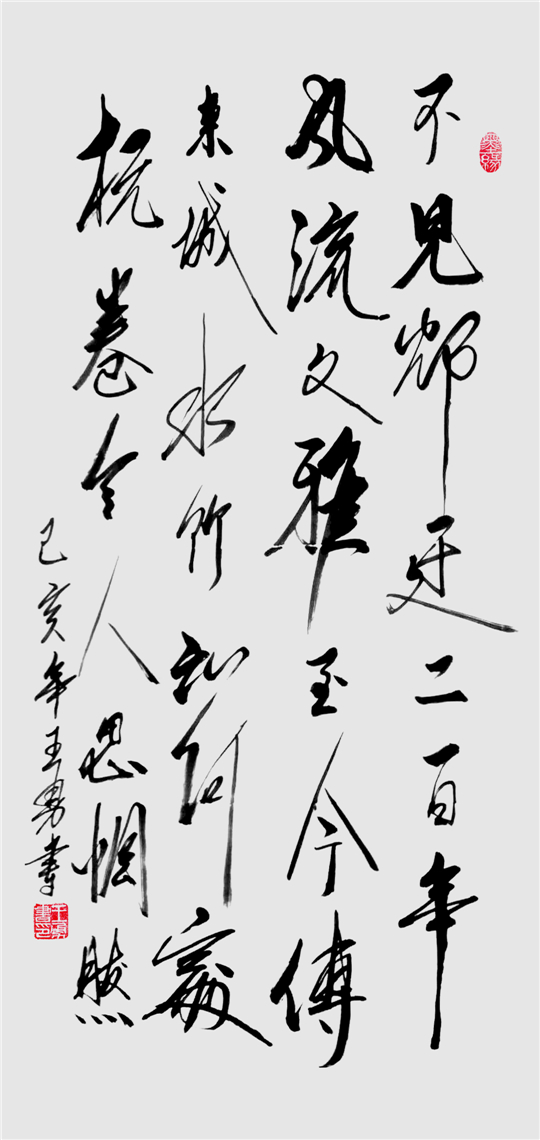 不見二百年
風流文雅至今傳
東城水竹知何處
卷令人思惘然
己亥年王勇書